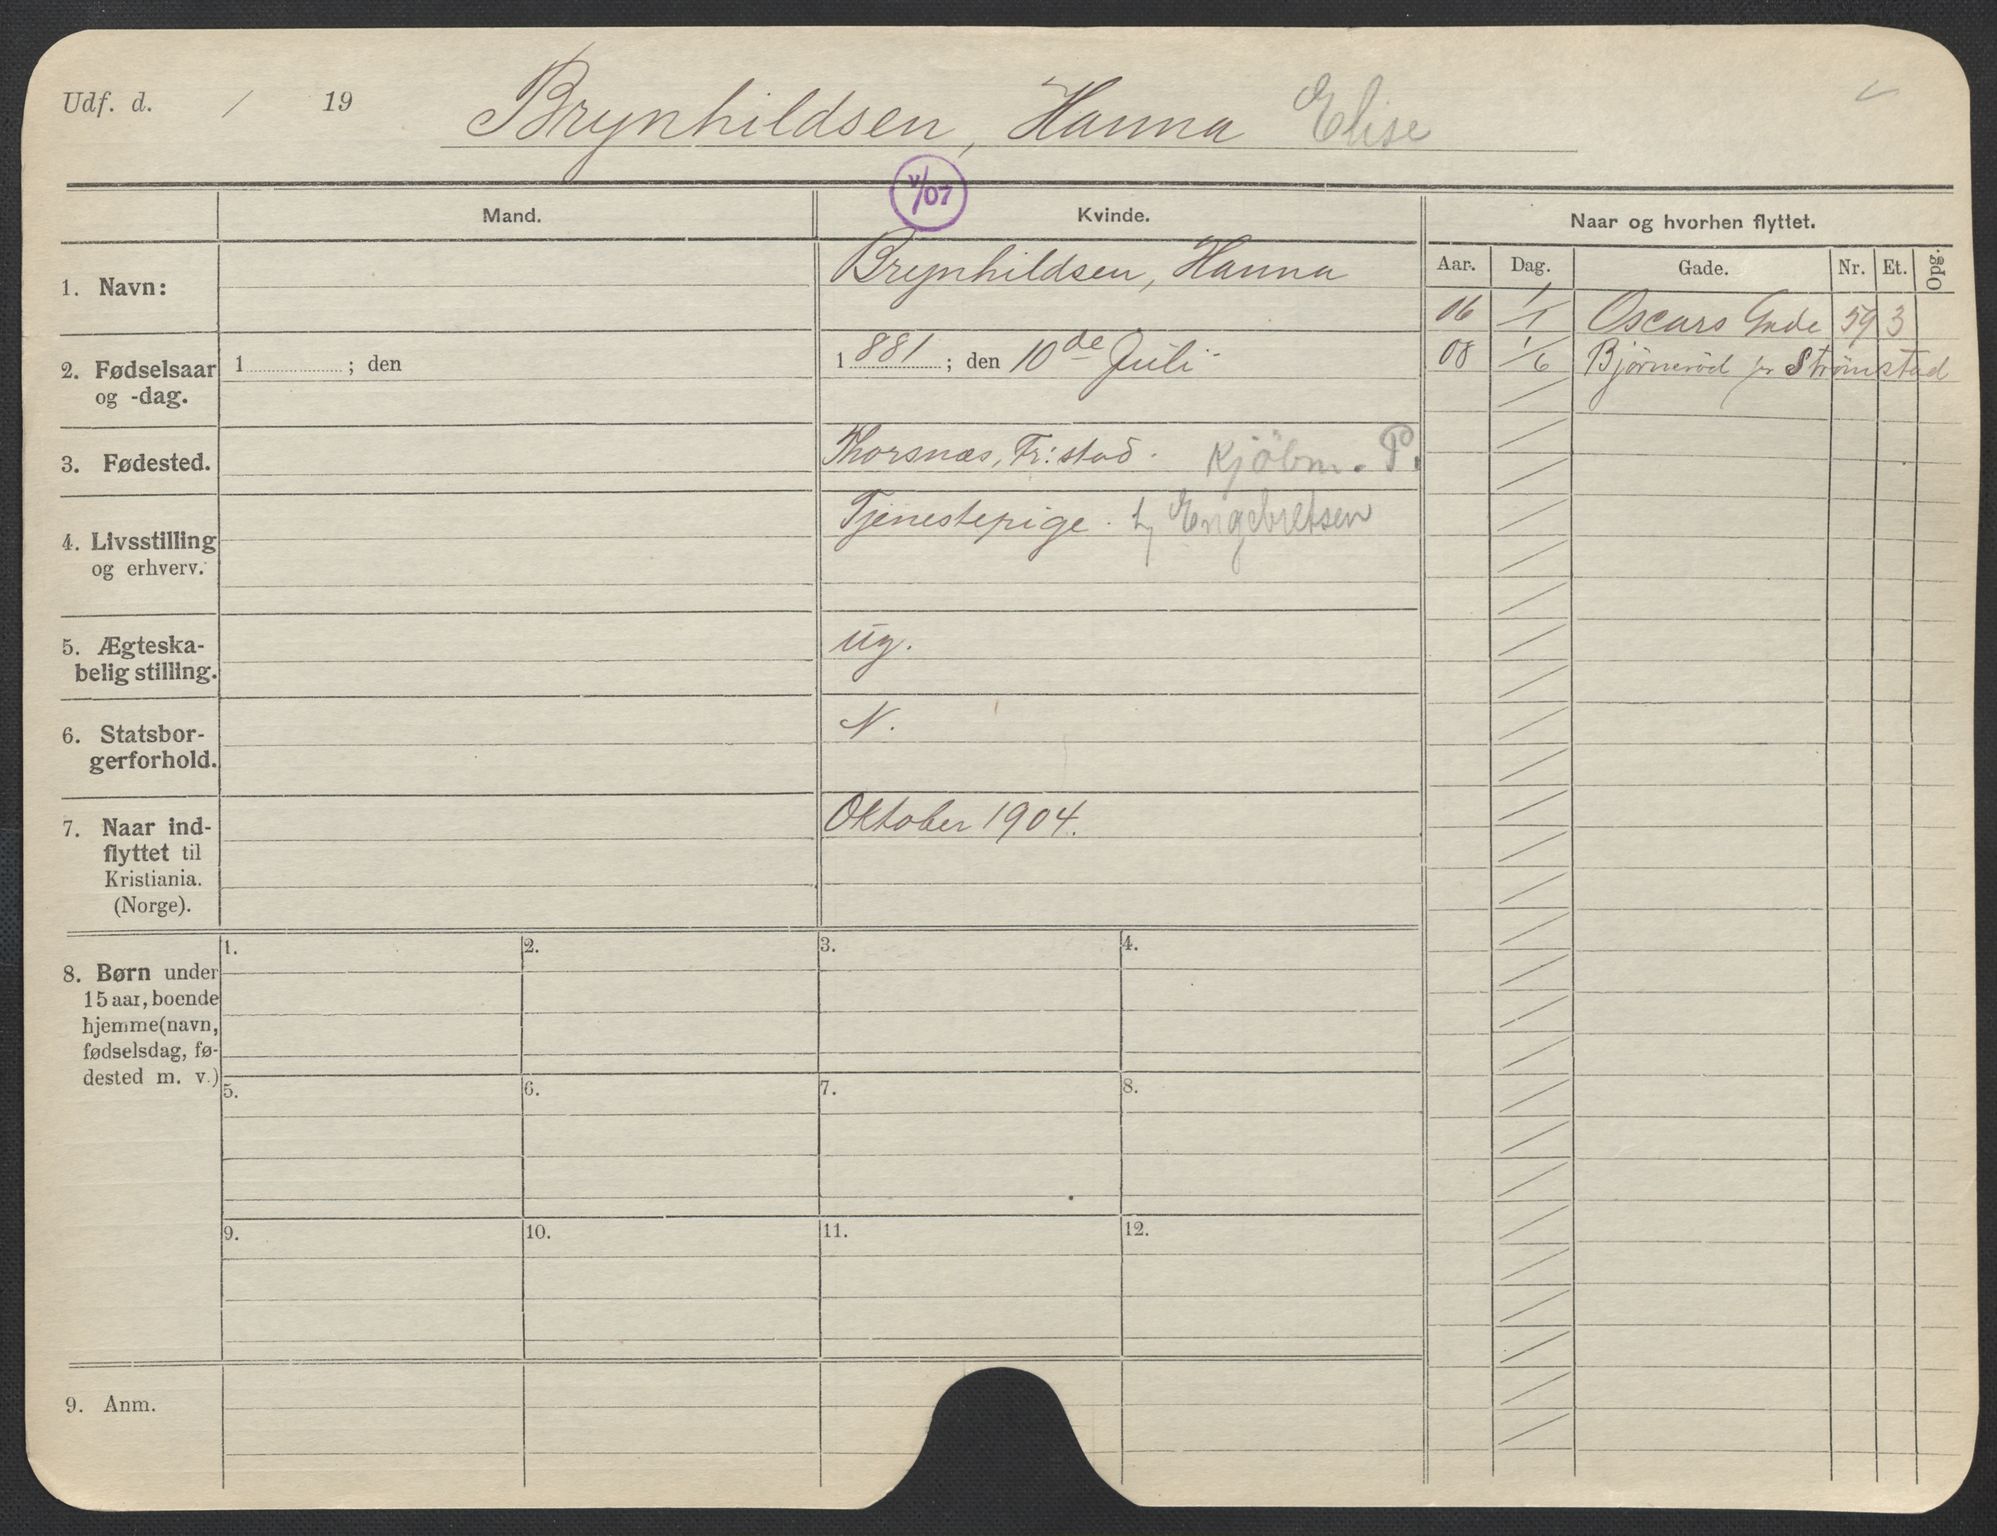 Udf. d. / 19 Brynhildsen, Hanna Elise
v/07
Mand. Kvinde. Naar og hvorhen flyttet.
Aar. Dag. Gade. Nr. Et. Opg.
1. Navn: Brynhildsen, Hanna
06 1/1 Oscars Gade 59 3
08 1/6 Bjørnerød pr Strømstad
2. Fødselsaar
og -dag.
1 ; den
1 881 ; den 10de Juli
3. Fødested. Thorsnæs, Fr:stad. Kjöbm. P.
4. Livsstilling
og erhverv.
Tjenestepige. Engebretsen
5. Ægteska-
belig stilling.
ug.
6. Statsbor-
gerforhold.
N.
7. Naar ind-
flyttet til
Kristiania.
(Norge).
Oktober 1904.
8. Børn under
15 aar, boende
hjemme (navn,
fødselsdag, fø-
dested m. v.)
1. 2. 3. 4.
5. 6. 7. 8.
9. 10. 11. 12.
9. Anm.